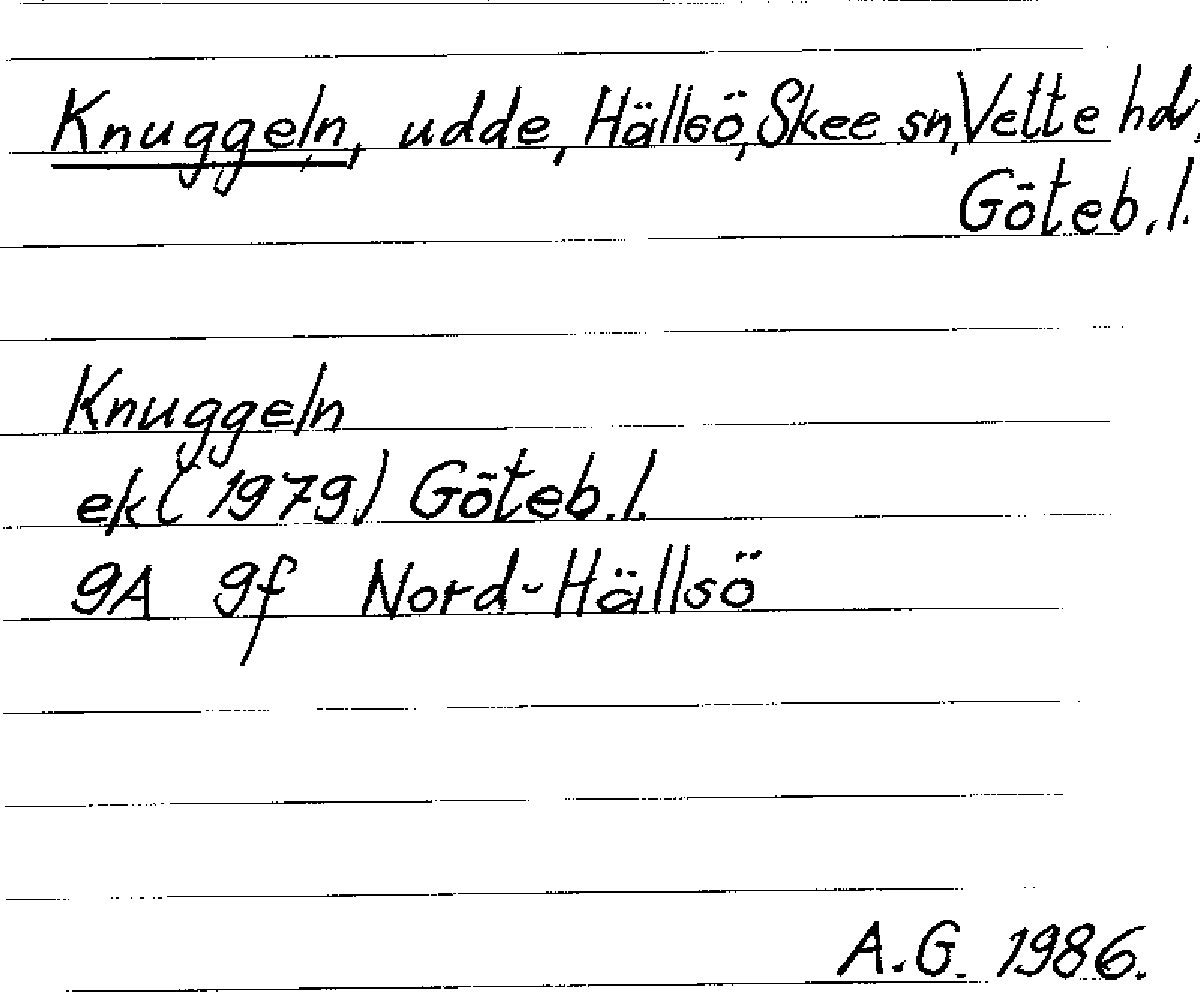 Knuggeln, udde, Hällsö, Skee sn, Vette hd,
Göteb. l.
Knuggeln
ek (1979) Göteb. l.
9A 9f Nord-Hällsö
A.G. 1986.